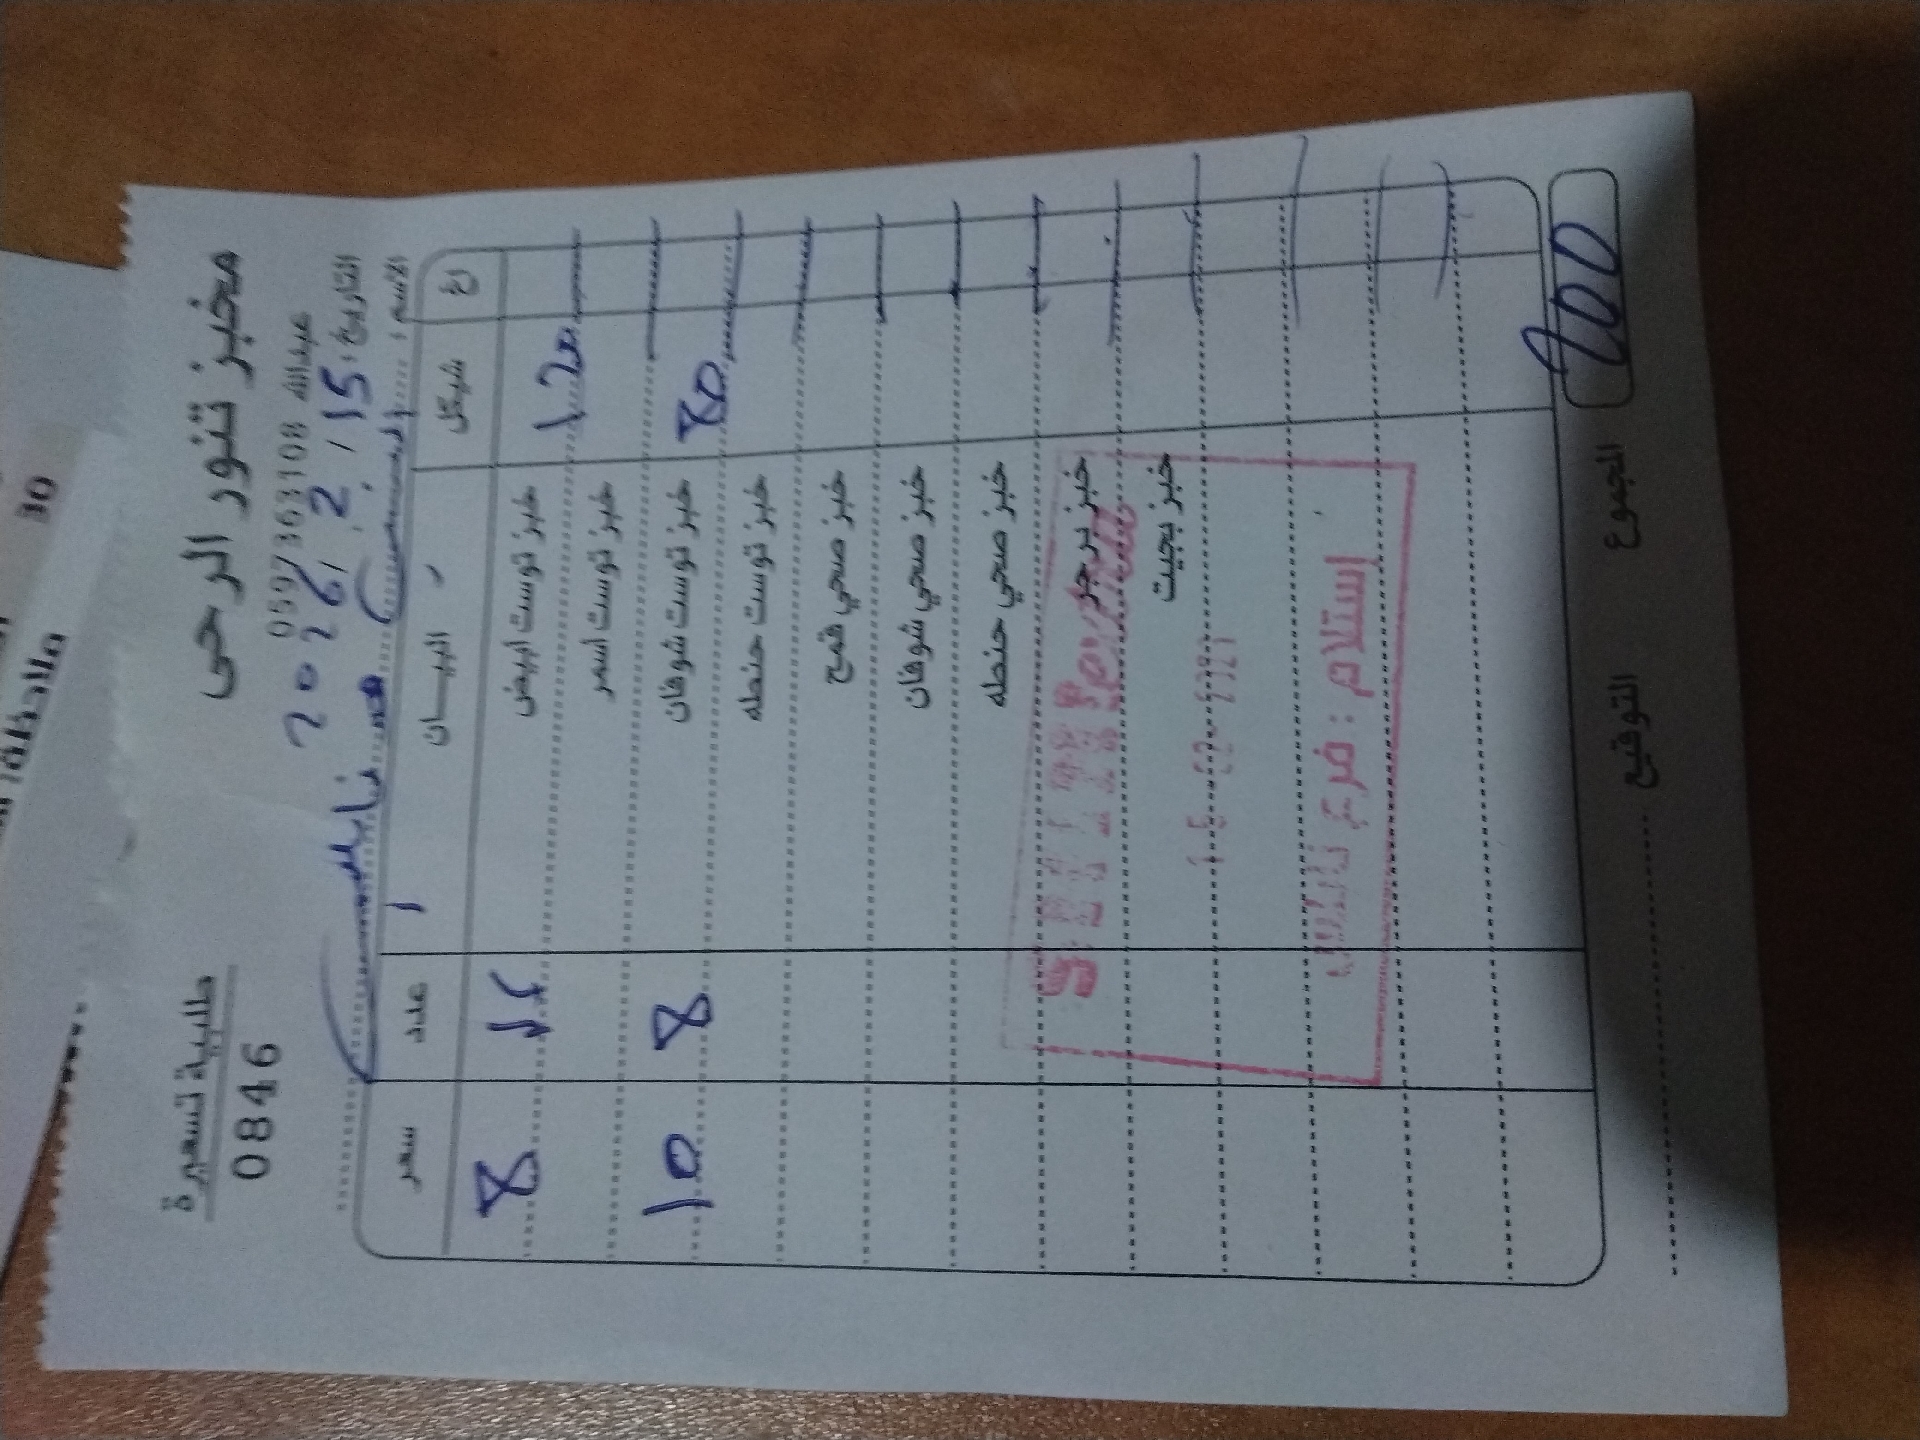 مخبز تنور الرحى
طلبية تسعيرة
0846
عبدالله 0597363108
التاريخ: 15 / 2 / 2026
الاسم:
سعر عدد البيـــان شيكل اغ
8 خبز توست ابيض 120
خبز توست اسمر
10 8 خبز توست شوفان 80
خبز توست حنطه
خبز صحي قمح
خبز صحي شوفان
خبز صحي حنطه
خبز برجر
خبز بجيت
استلام : فرع نابلس
المجموع 200
التوقيع
30